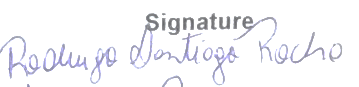 Signature
Rodrigo Santiago Rocha